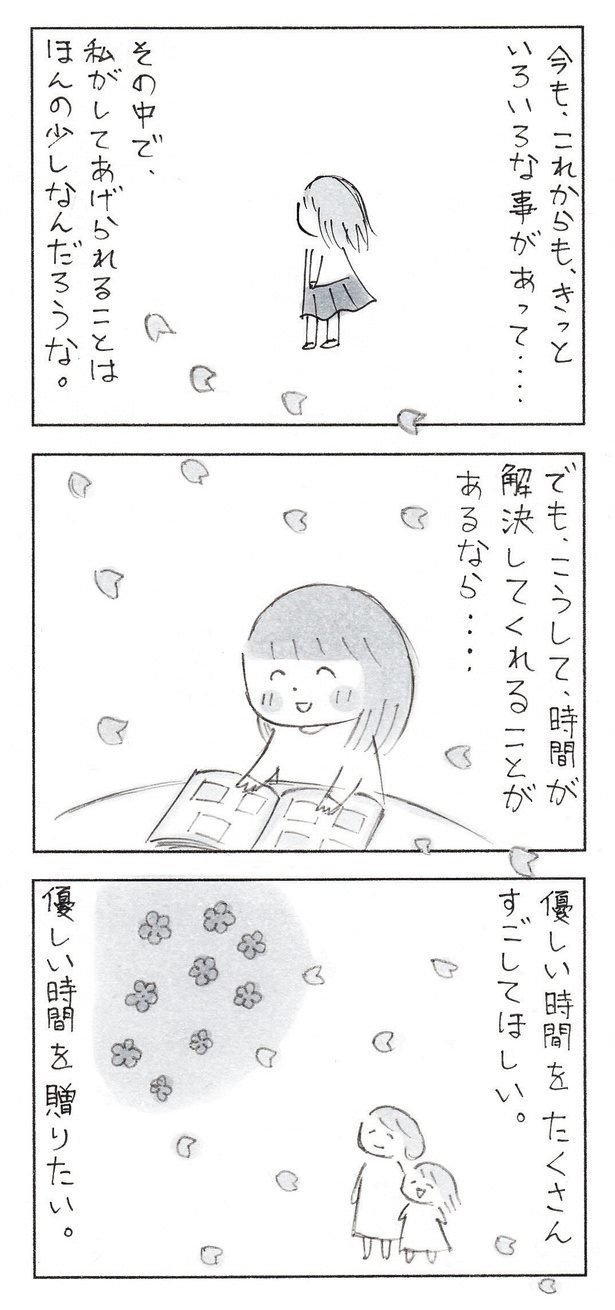 今も、これからも、きっと
いろいろな事があって····
その中で、
私がしてあげられることは
ほんの少しなんだろうな。
でも、こうして、時間が
解決してくれることが
あるなら····
優しい時間を たくさん
すごしてほしい。
優しい時間を 贈りたい。